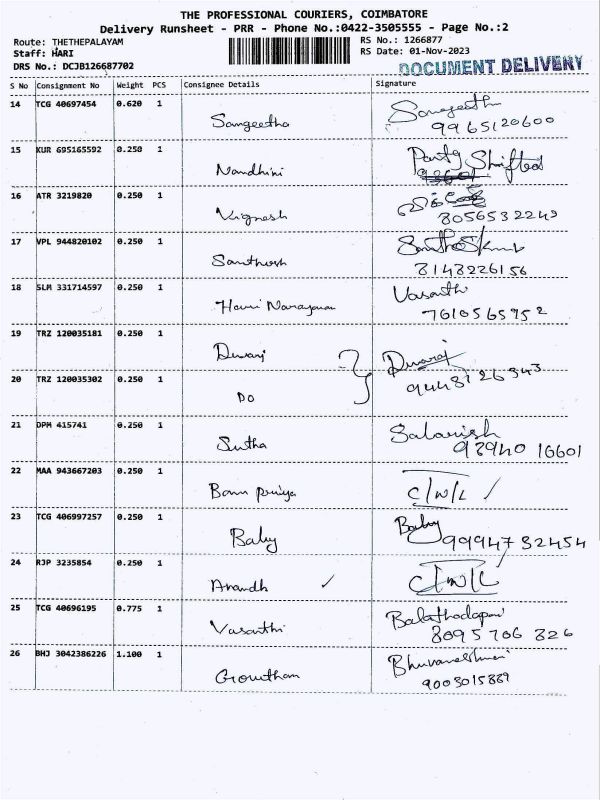 THE PROFESSIONAL COURIERS, COIMBATORE
Delivery Runsheet - PRR - Phone No.:0422-3505555 - Page No.:2
Route: THETHEPALAYAM
RS No.: 1266877
Staff: HARI
RS Date: 01-Nov-2023
DRS No.: DCJB126687702
DOCUMENT DELIVERY
S No Consignment No Weight PCS Consignee Details Signature
14 TCG 40697454 0.620 1
Sangeetha
Sangeetha
9965120600
15 KUR 695165592 0.250 1
Nandhini
Party Shifted
16 ATR 3219820 0.250 1
Vignesh
8056532249
17 VPL 944820102 0.250 1
Santhosh
8148226156
18 SLM 331714597 0.250 1
Hari Narayanan
Vasanth
7610565952
19 TRZ 120035181 0.250 1
Dwaraj
Dwaraj
20 TRZ 120035302 0.250 1
DO
21 DPM 415741 0.250 1
Sutha
98940 16601
22 MAA 943667203 0.250 1
Banu priya
C/W/L
23 TCG 406997257 0.250 1
Baby
Baby
99947 32454
24 RJP 3235854 0.250 1
Anandh
C/W/L
25 TCG 40696195 0.775 1
Vasanthi
8095706 326
26 BHJ 3042386226 1.100 1
Gowtham
Bhuvaneshwari
9003015889